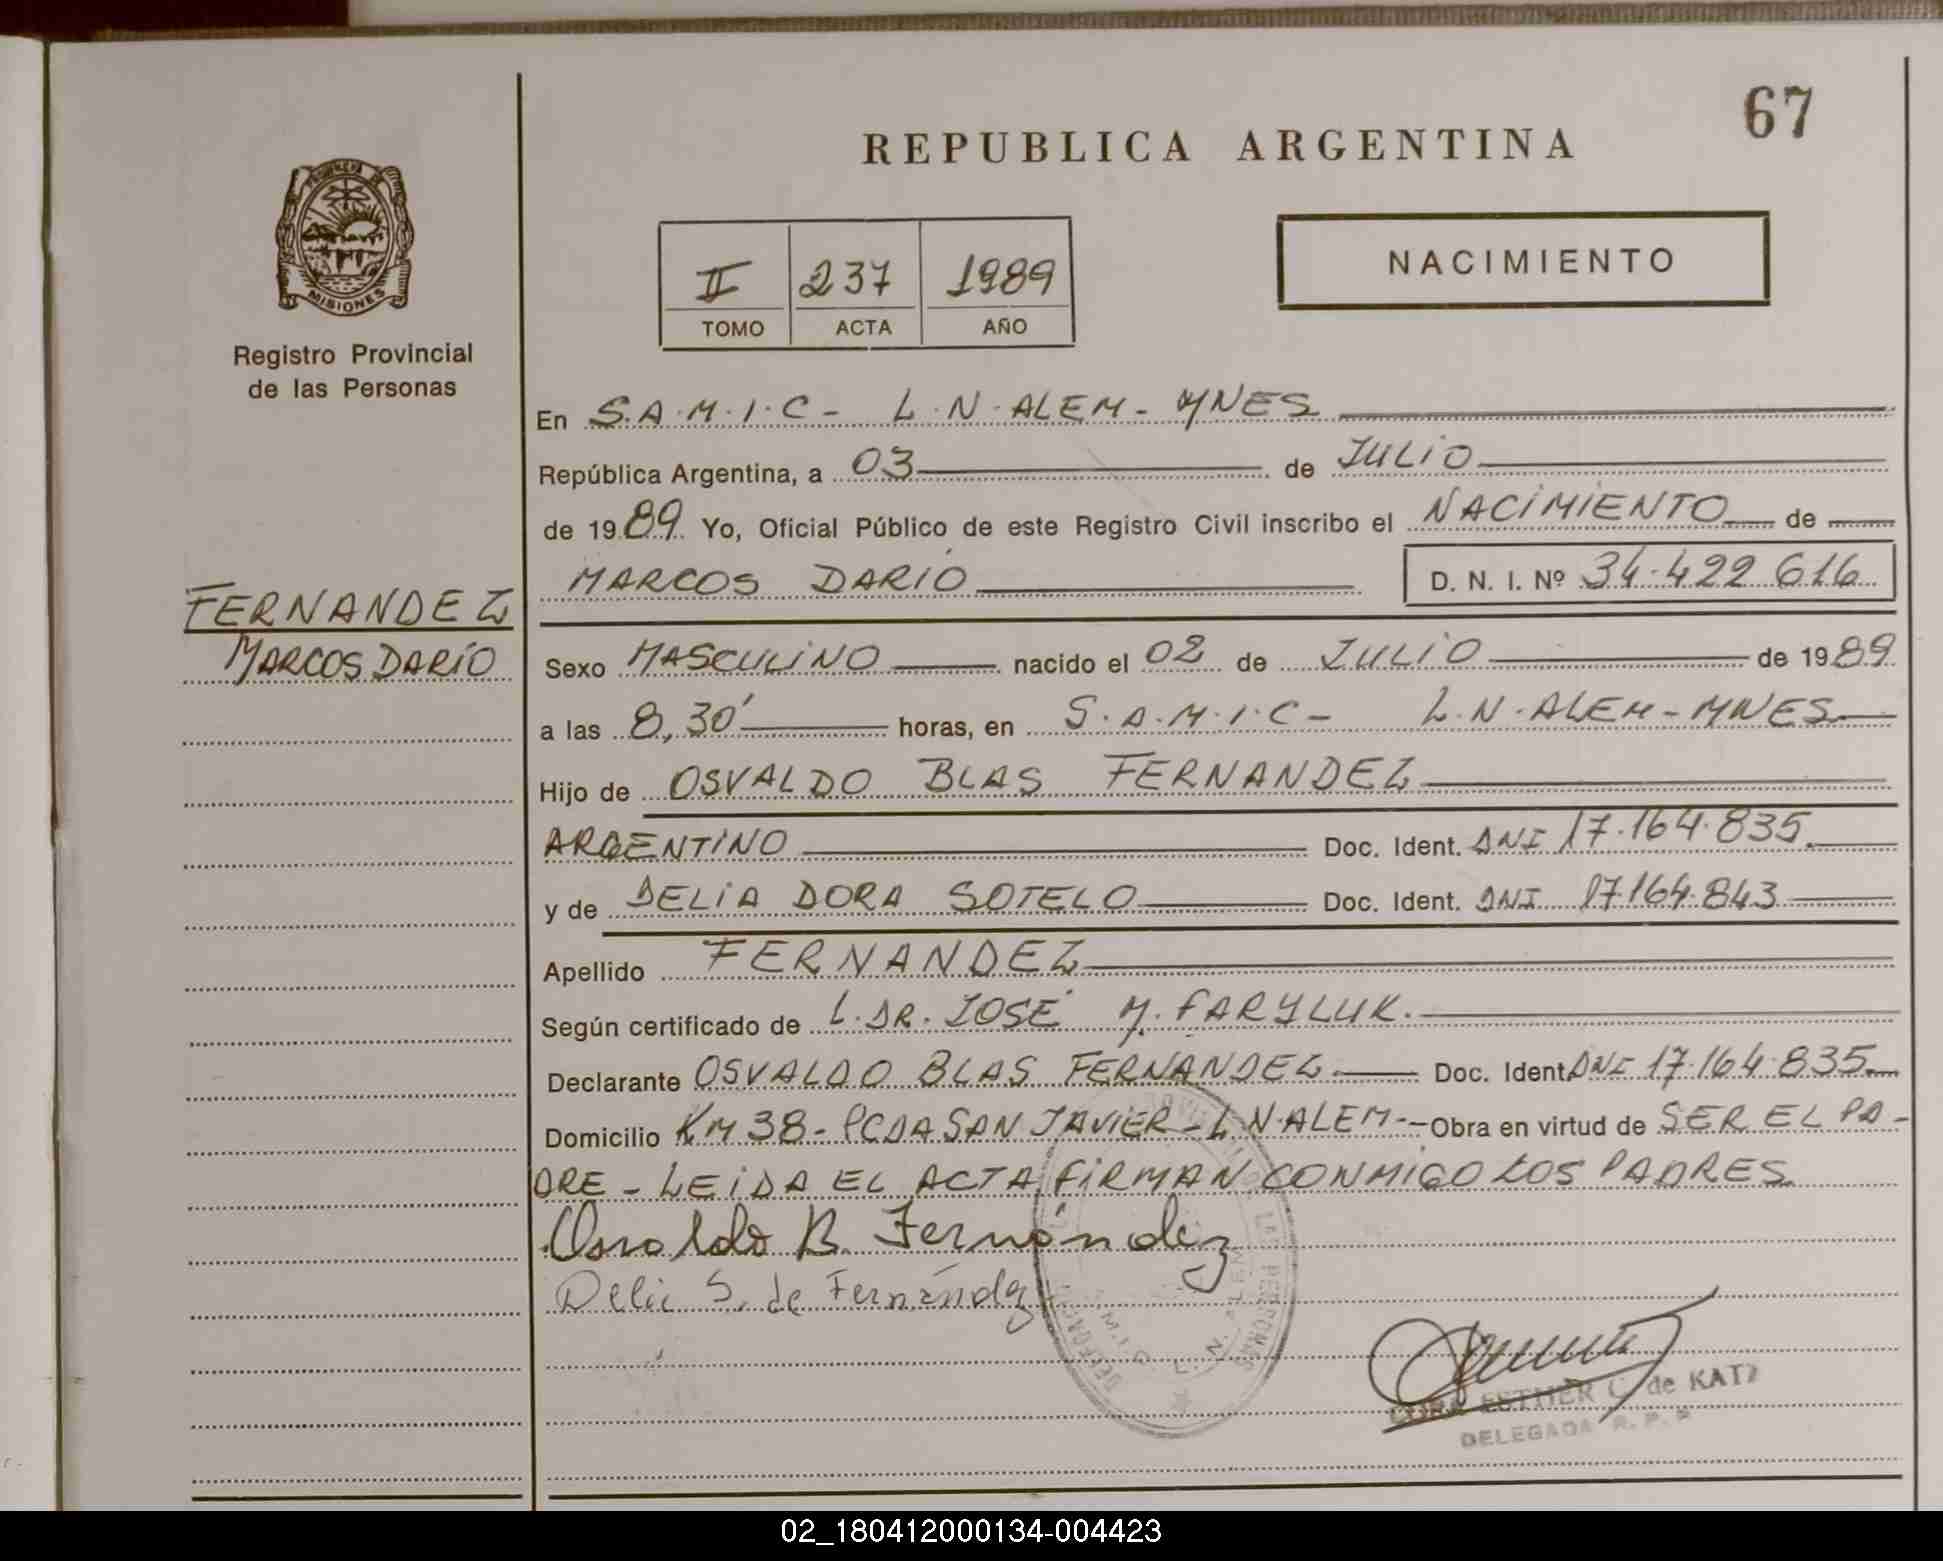 67
REPUBLICA ARGENTINA
PROVINCIA DE
MISIONES
Registro Provincial
de las Personas
II 237 1989
TOMO ACTA AÑO
NACIMIENTO
En S.A.M.I.C- L.N.ALEM- MNES
República Argentina, a 03 de JULIO
de 1989 Yo, Oficial Público de este Registro Civil inscribo el NACIMIENTO de
MARCOS DARIO D. N. I. Nº 34.422 616
FERNANDEZ
MARCOS DARÍO
Sexo MASCULINO nacido el 02 de JULIO de 1989
a las 8,30' horas, en S.A.M.I.C- L.N.ALEM-MNES
Hijo de OSVALDO BLAS FERNANDEZ
ARGENTINO Doc. Ident. DNI 17.164.835
y de DELIA DORA SOTELO Doc. Ident. DNI 17.164.843
Apellido FERNANDEZ
Según certificado de L.DR. JOSÉ M. FARYLUK.
Declarante OSVALDO BLAS FERNANDEZ Doc. Ident. DNI 17.164.835
Domicilio KM 38- PCDA SAN JAVIER-L.N.ALEM- Obra en virtud de SER EL PA-
DRE - LEIDA EL ACTA FIRMAN CONMIGO LOS PADRES.
Osvaldo B. Fernández
Delia S. de Fernández
LAS PERSONAS
L. N. ALEM
ESTHER C. de KATZ
DELEGADA R. P. P
02_180412000134-004423